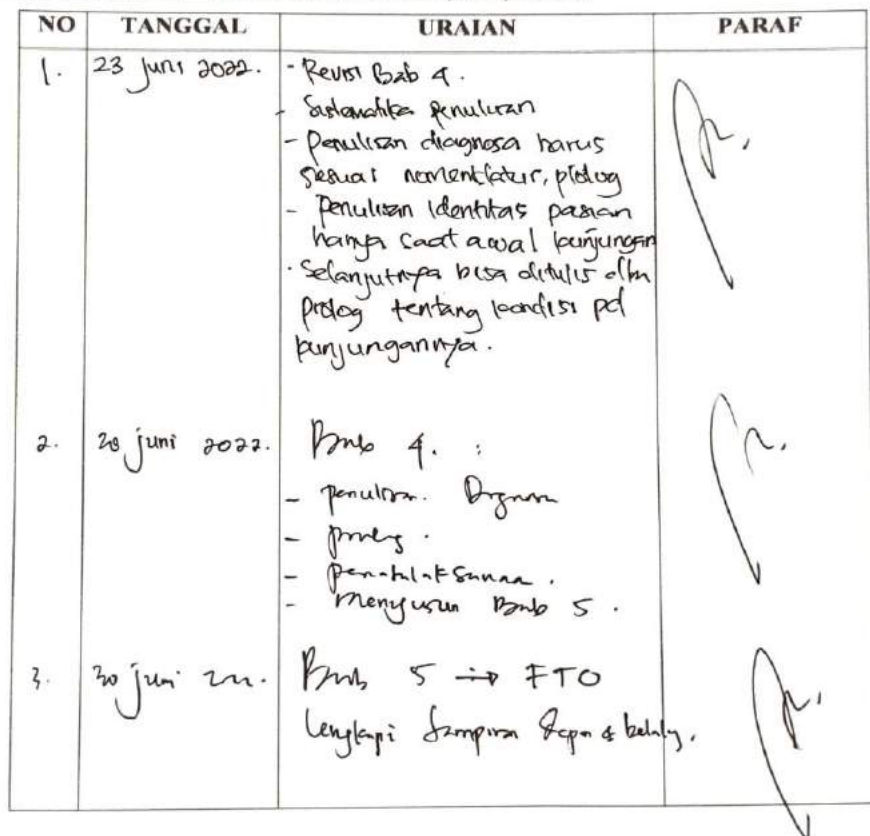 NO TANGGAL URAIAN PARAF
1. 23 Juni 2022. - Revisi Bab 4.
- Sistematika penulisan
- Penulisan diagnosa harus
sesuai nomenklatur, prolog
- Penulisan Identitas pasien
hanya saat awal kunjungan
- Selanjutnya bisa ditulis dlm
prolog tentang kondisi pd
kunjungannya.
2. 28 juni 2022. Bab 4. :
- penulisan. Diagnosa
- prolog.
- penatalaksanaan.
- Menyusun Bab 5.
3. 30 juni Bab 5 → FTO
lengkapi lampiran depan & belakang.